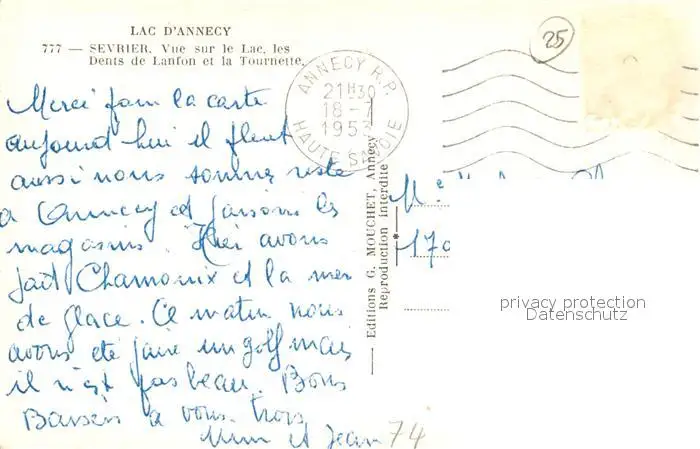 LAC D'ANNECY
777 — SEVRIER. Vue sur le Lac, les
Dents de Lanfon et la Tournette.
25
ANNECY R.P.
21H30
18-7
195
HAUTE SAVOIE
Merci pour la carte
aujourd'hui il pleut
aussi nous sommes resté
à Annecy et faisons les
magasins. Hier avons
fait Chamonix et la mer
de glace. Ce matin nous
avons été faire un golf mais
il n'est pas beau. Bons
Baisers à vous trois
Mim et Jean
74
Editions G. MOUCHET, Annecy
Reproduction interdite
170
privacy protection
Datenschutz